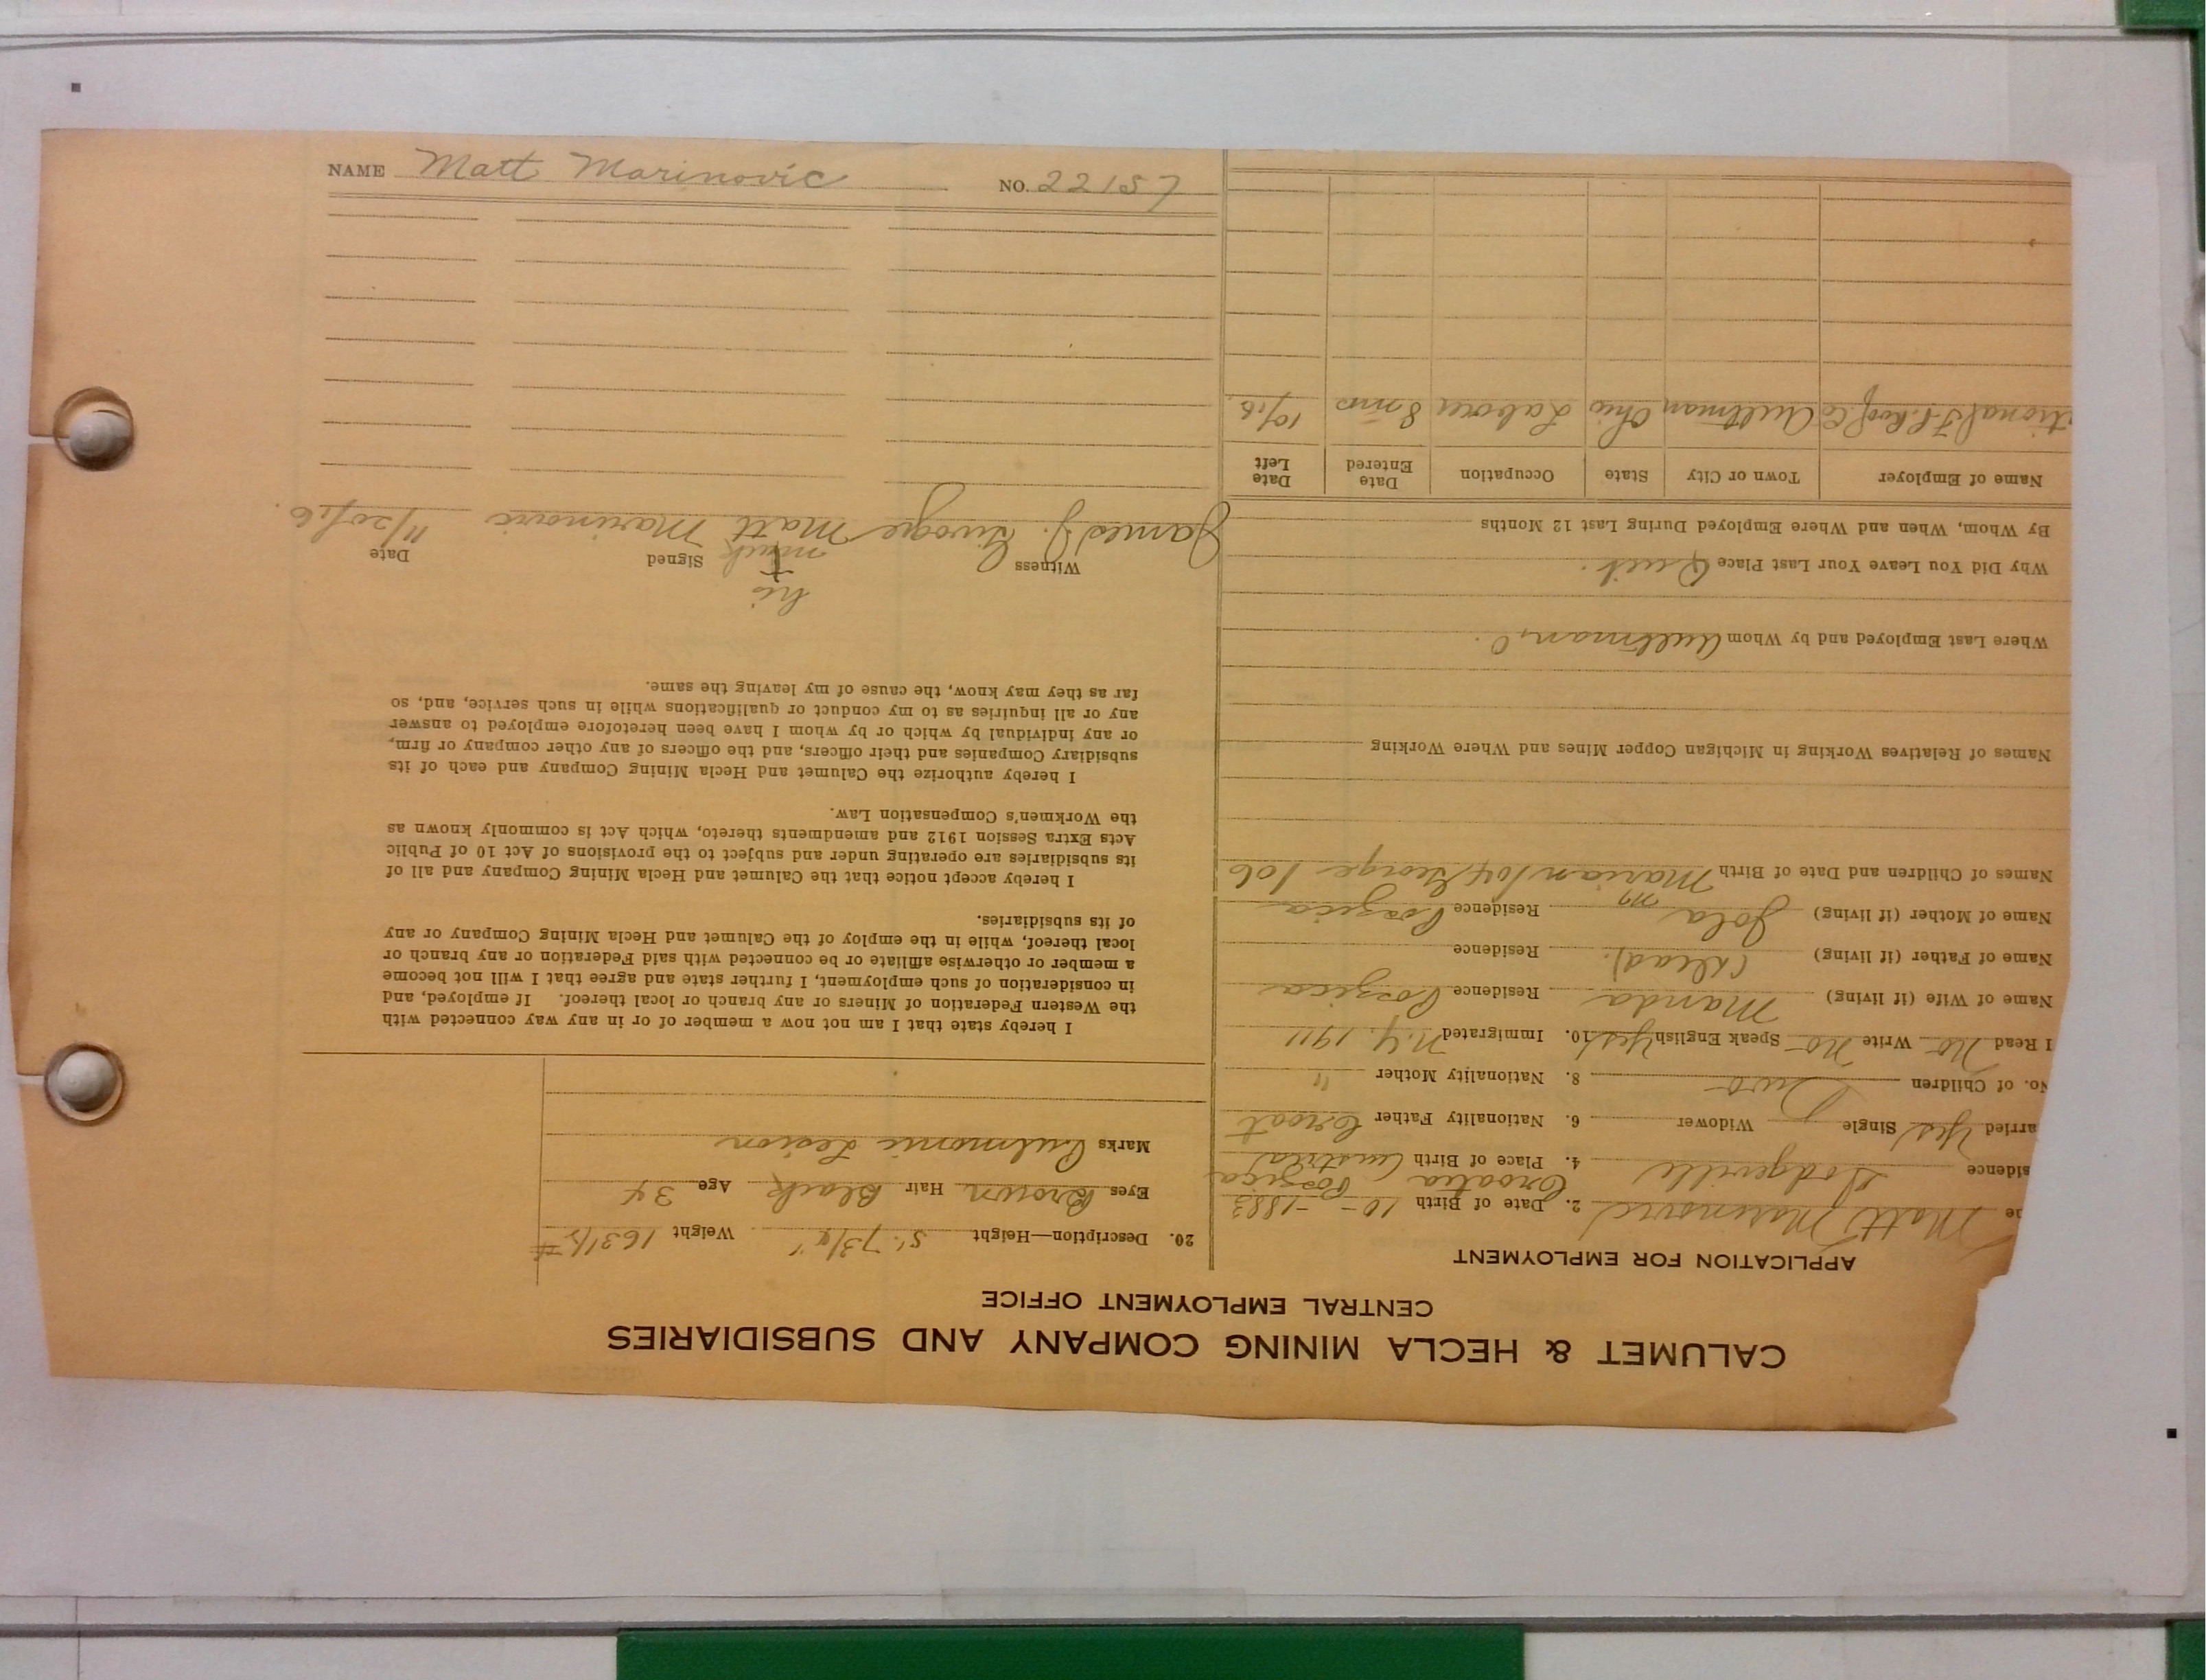 CALUMET & HECLA MINING COMPANY AND SUBSIDIARIES
CENTRAL EMPLOYMENT OFFICE
APPLICATION FOR EMPLOYMENT
me Matt Marinovic 2. Date of Birth 10 - - 1883
sidence Dodgeville 4. Place of Birth Croatia Pozega Austria
arried Yes Single Widower 6. Nationality Father Croat
No. of Children Two 8. Nationality Mother "
I Read No Write No Speak English Yes 10. Immigrated N.Y. 1911
Name of Wife (if living) Manda Residence
Name of Father (if living) (Dead). Residence
Name of Mother (if living) Jola M Residence
Names of Children and Date of Birth Marian 104 George 106
Names of Relatives Working in Michigan Copper Mines and Where Working
Where Last Employed and by Whom Aultman, O.
Why Did You Leave Your Last Place Quit.
By Whom, When and Where Employed During Last 12 Months
Name of Employer Town or City State Occupation Date Entered Date Left
tional Aultman Ohio Laborer 8 mos 10/16
20. Description—Height 5' 7 3/4" Weight 163 1/2 #
Eyes Brown Hair Black Age 34
Marks Pulmonic Lesion
I hereby state that I am not now a member of or in any way connected with
the Western Federation of Miners or any branch or local thereof. If employed, and
in consideration of such employment, I further state and agree that I will not become
a member or otherwise affiliate or be connected with said Federation or any branch or
local thereof, while in the employ of the Calumet and Hecla Mining Company or any
of its subsidiaries.
I hereby accept notice that the Calumet and Hecla Mining Company and all of
its subsidiaries are operating under and subject to the provisions of Act 10 of Public
Acts Extra Session 1912 and amendments thereto, which Act is commonly known as
the Workmen's Compensation Law.
I hereby authorize the Calumet and Hecla Mining Company and each of its
subsidiary Companies and their officers, and the officers of any other company or firm,
or any individual by which or by whom I have been heretofore employed to answer
any or all inquiries as to my conduct or qualifications while in such service, and, so
far as they may know, the cause of my leaving the same.
his
Witness mark Signed Date
James J. Matt Marinovic 11/20/16.
NAME Matt Marinovic NO. 22157